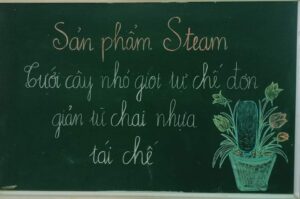 Sản phẩm Steam
Tưới cây nhỏ giọt tự chế đơn
giản từ chai nhựa
tái chế